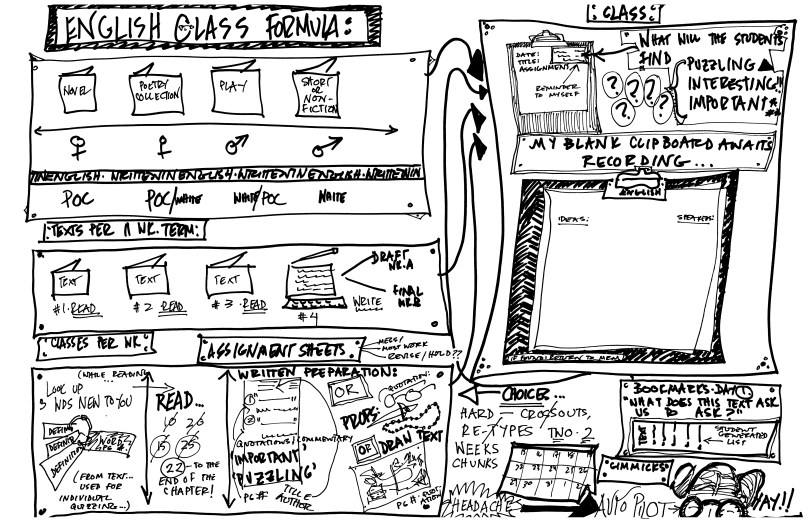 ENGLISH CLASS FORMULA:
NOVEL
POETRY
COLLECTION
PLAY
SHORT
OR
NON-
FICTION
WRITTEN IN ENGLISH · WRITTEN IN ENGLISH · WRITTEN IN ENGLISH · WRITTEN IN
POC
POC/WHITE
WHITE/POC
WHITE
TEXTS PER
WK. TERM:
TEXT
TEXT
TEXT
#1 · READ
#2 · READ
#3 · READ
#4
WRITE
DRAFT
WK. A
FINAL
WK. B
CLASSES PER WK:
ASSIGNMENT SHEETS
MESS/
MOST WORK
REVISE/HOLD??
(WHILE READING)
LOOK UP
3 WDS NEW TO YOU
DEFINE
DEFINE
DEFINITION
WORDZ
(FROM TEXT...
USED FOR
INDIVIDUAL
QUIZZING...)
READ...
22 - TO THE
END OF THE
CHAPTER!
WRITTEN PREPARATION:
QUOTATIONS/COMMENTARY
'IMPORTANT'
'PUZZLING'
PG# TITLE
AUTHOR
OR
PROPS
QUOTATION:
OR
DRAW TEXT
PG# QUOTATION
: CLASS:
DATE:
TITLE:
ASSIGNMENT
REMINDER
TO MYSELF
WHAT WILL THE STUDENTS
FIND
PUZZLING
INTERESTING!!
IMPORTANT
? ? ? ?
? ?
MY BLANK CLIPBOARD AWAITS
RECORDING...
ENGLISH
IDEAS:
SPEAKER:
IF FOUND: RETURN TO
CHOICEZ...
HARD = CROSSOUTS,
RE-TYPES TWO · 2
WEEKS
CHUNKS
HEADACHE
BOOKMARKS · DAY 1
"WHAT DOES THIS TEXT ASK
US TO ASK?"
STUDENT
GENERATED
LIST
GIMMICKS
AUTO PILOT
YAY!!